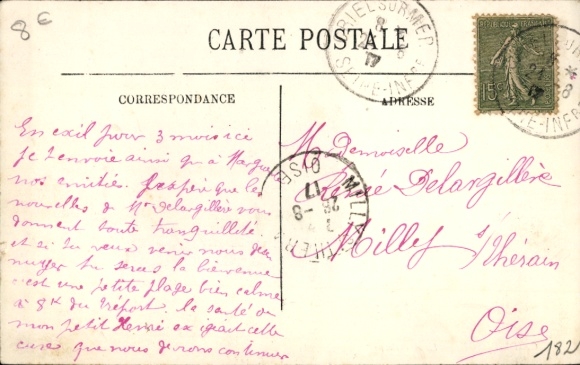 8 €
CARTE POSTALE
CORRESPONDANCE
ADRESSE
CRIEL SUR MER
8
21 8
17
Sne-INFre
15c
En exil pour 3 mois ici
je t'envoie ainsi qu'à Margue
nos amitiés. J'espère que les
nouvelles de Mr Delargillère vous
donnent toute tranquillité.
et si tu veux venir nous dé
nuyer tu seras la bienvenue
c'est une petite plage bien calme
à 8 K du Tréport. la santé de
mon petit Henri exigeait cette
cure que nous devons continuer
Mademoiselle
Renée Delargillère
Milly s/ Thérain
Oise
MILLY
OISE
17
182